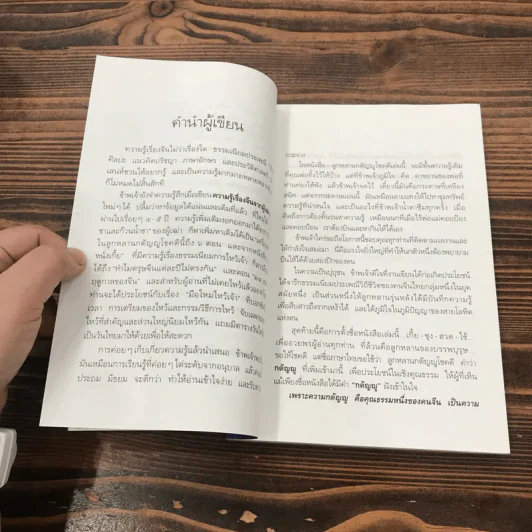 คำนำผู้เขียน
ความรู้เรื่องจีนไม่ว่าเรื่องใด ธรรมเนียมประเพณี
ศิลปะ แนวคิดปรัชญา ภาษาอักษร และประวัติศาสตร์
เสน่ห์ชวนให้อยากรู้ และเป็นความรู้มากมายหลาย
ก็ไม่หมดไม่สิ้นสักที
ข้าพเจ้ายังจำความรู้สึกเมื่อเขียนความรู้เรื่องจีนจากผู้เฒ่า
ใหม่ๆ ได้ ปลื้มว่าหาข้อมูลได้แน่นและเต็มที่แล้ว
ผ่านไปเรื่อยๆ ๔-๕ ปี ความรู้เพิ่มเติมงอกออกมาได้
ชาและก๊วนน้ำชา" ของผู้เฒ่า ก็หาเพิ่มหาเติมได้
ในลูกหลานกตัญญูโชคดีนี้ถึง ๖ ตอน และจาก
หนังเกี๊ยะ" ที่มีความรู้เรื่องธรรมเนียมการไหว้เจ้า
ได้ถึง "ทำไมตรุษจีนแต่ละปีไม่ตรงกัน" และตอน
ฤดูกาลของจีน" และสำหรับผู้อ่านที่ไม่เคยไหว้แล้ว
ท่านจะได้ประโยชน์กับเรื่อง "มือใหม่ไหว้เจ้า" ที่
เวลา การเตรียมของไหว้และกรรมวิธีการไหว้
ไหว้ที่สำคัญและส่วนใหญ่นิยมไหว้กัน แถมมีตาราง
เป็นวันไทยมาให้ด้วยเพื่อให้สะดวก
การค่อยๆ เก็บเกี่ยวความรู้แล้วนำเสนอ ข้าพเจ้า
มันเหมือนการเรียนรู้ที่ค่อยๆ ไต่ระดับจากอนุบาล แล้ว
ประถม มัธยม จะดีกว่า ทำให้อ่านเข้าใจง่าย และรับ
ในหนังสือ ลูกหลานกตัญญูโชคดีเล่มนี้ จะมีพื้นความรู้เดิม
ที่คุณพ่อทิ้งไว้ให้บ้าง แต่ที่ข้าพเจ้าภูมิใจ คือ
ความรู้ที่น่าสนใจ และเป็นอะไรที่ข้าพเจ้าน้ำตาซึมทุกครั้ง เมื่อ
คิดถึงการต้องดิ้นรนหาความรู้ เหมือนนกที่เมื่อไร้พ่อแม่คอยป้อน
และคอยป้อน เราต้องบินและหากินให้ได้เอง
ข้าพเจ้าใคร่ขอถือโอกาสนี้ขอบคุณทุกท่านที่ติดตามผลงานและ
ให้กำลังใจเสมอมา นี่คือแรงใจยิ่งใหญ่ที่ทำให้นกตัวหนึ่งต้องพยายาม
บินให้ได้ด้วยสองปีกของตน
ในความเป็นปุถุชน ข้าพเจ้าดีใจที่งานเขียนได้ก่อเกิดประโยชน์
ได้จารึกธรรมเนียมประเพณีวิถีชีวิตของคนจีนไทยกลุ่มหนึ่งในยุค
สมัยหนึ่ง เป็นส่วนหนึ่งให้ลูกหลานรุ่นหลังได้มีบันทึกความรู้
เพื่อสืบสาวถึงรากเหง้าได้ และได้ภูมิใจในภูมิปัญญาของสายโลหิต
แห่งตน
สุดท้ายนี้คือการตั้งชื่อหนังสือเล่มนี้
เพื่ออวยพรผู้อ่านทุกท่าน ที่ล้วนคือลูกหลานของบรรพบุรุษ
ขอให้โชคดี แต่ชื่อภาษาไทยขอใช้ว่า ลูกหลานกตัญญูโชคดี คำว่า
กตัญญู ที่เพิ่มเข้ามานี้ เพื่อประโยชน์ในเชิงคุณธรรม ให้ผู้ที่เห็น
แม้เพียงชื่อหนังสือได้มีคำ "กตัญญู" ฝังเข้าในใจ
เพราะความกตัญญู คือคุณธรรมหนึ่งของคนจีน เป็นความ